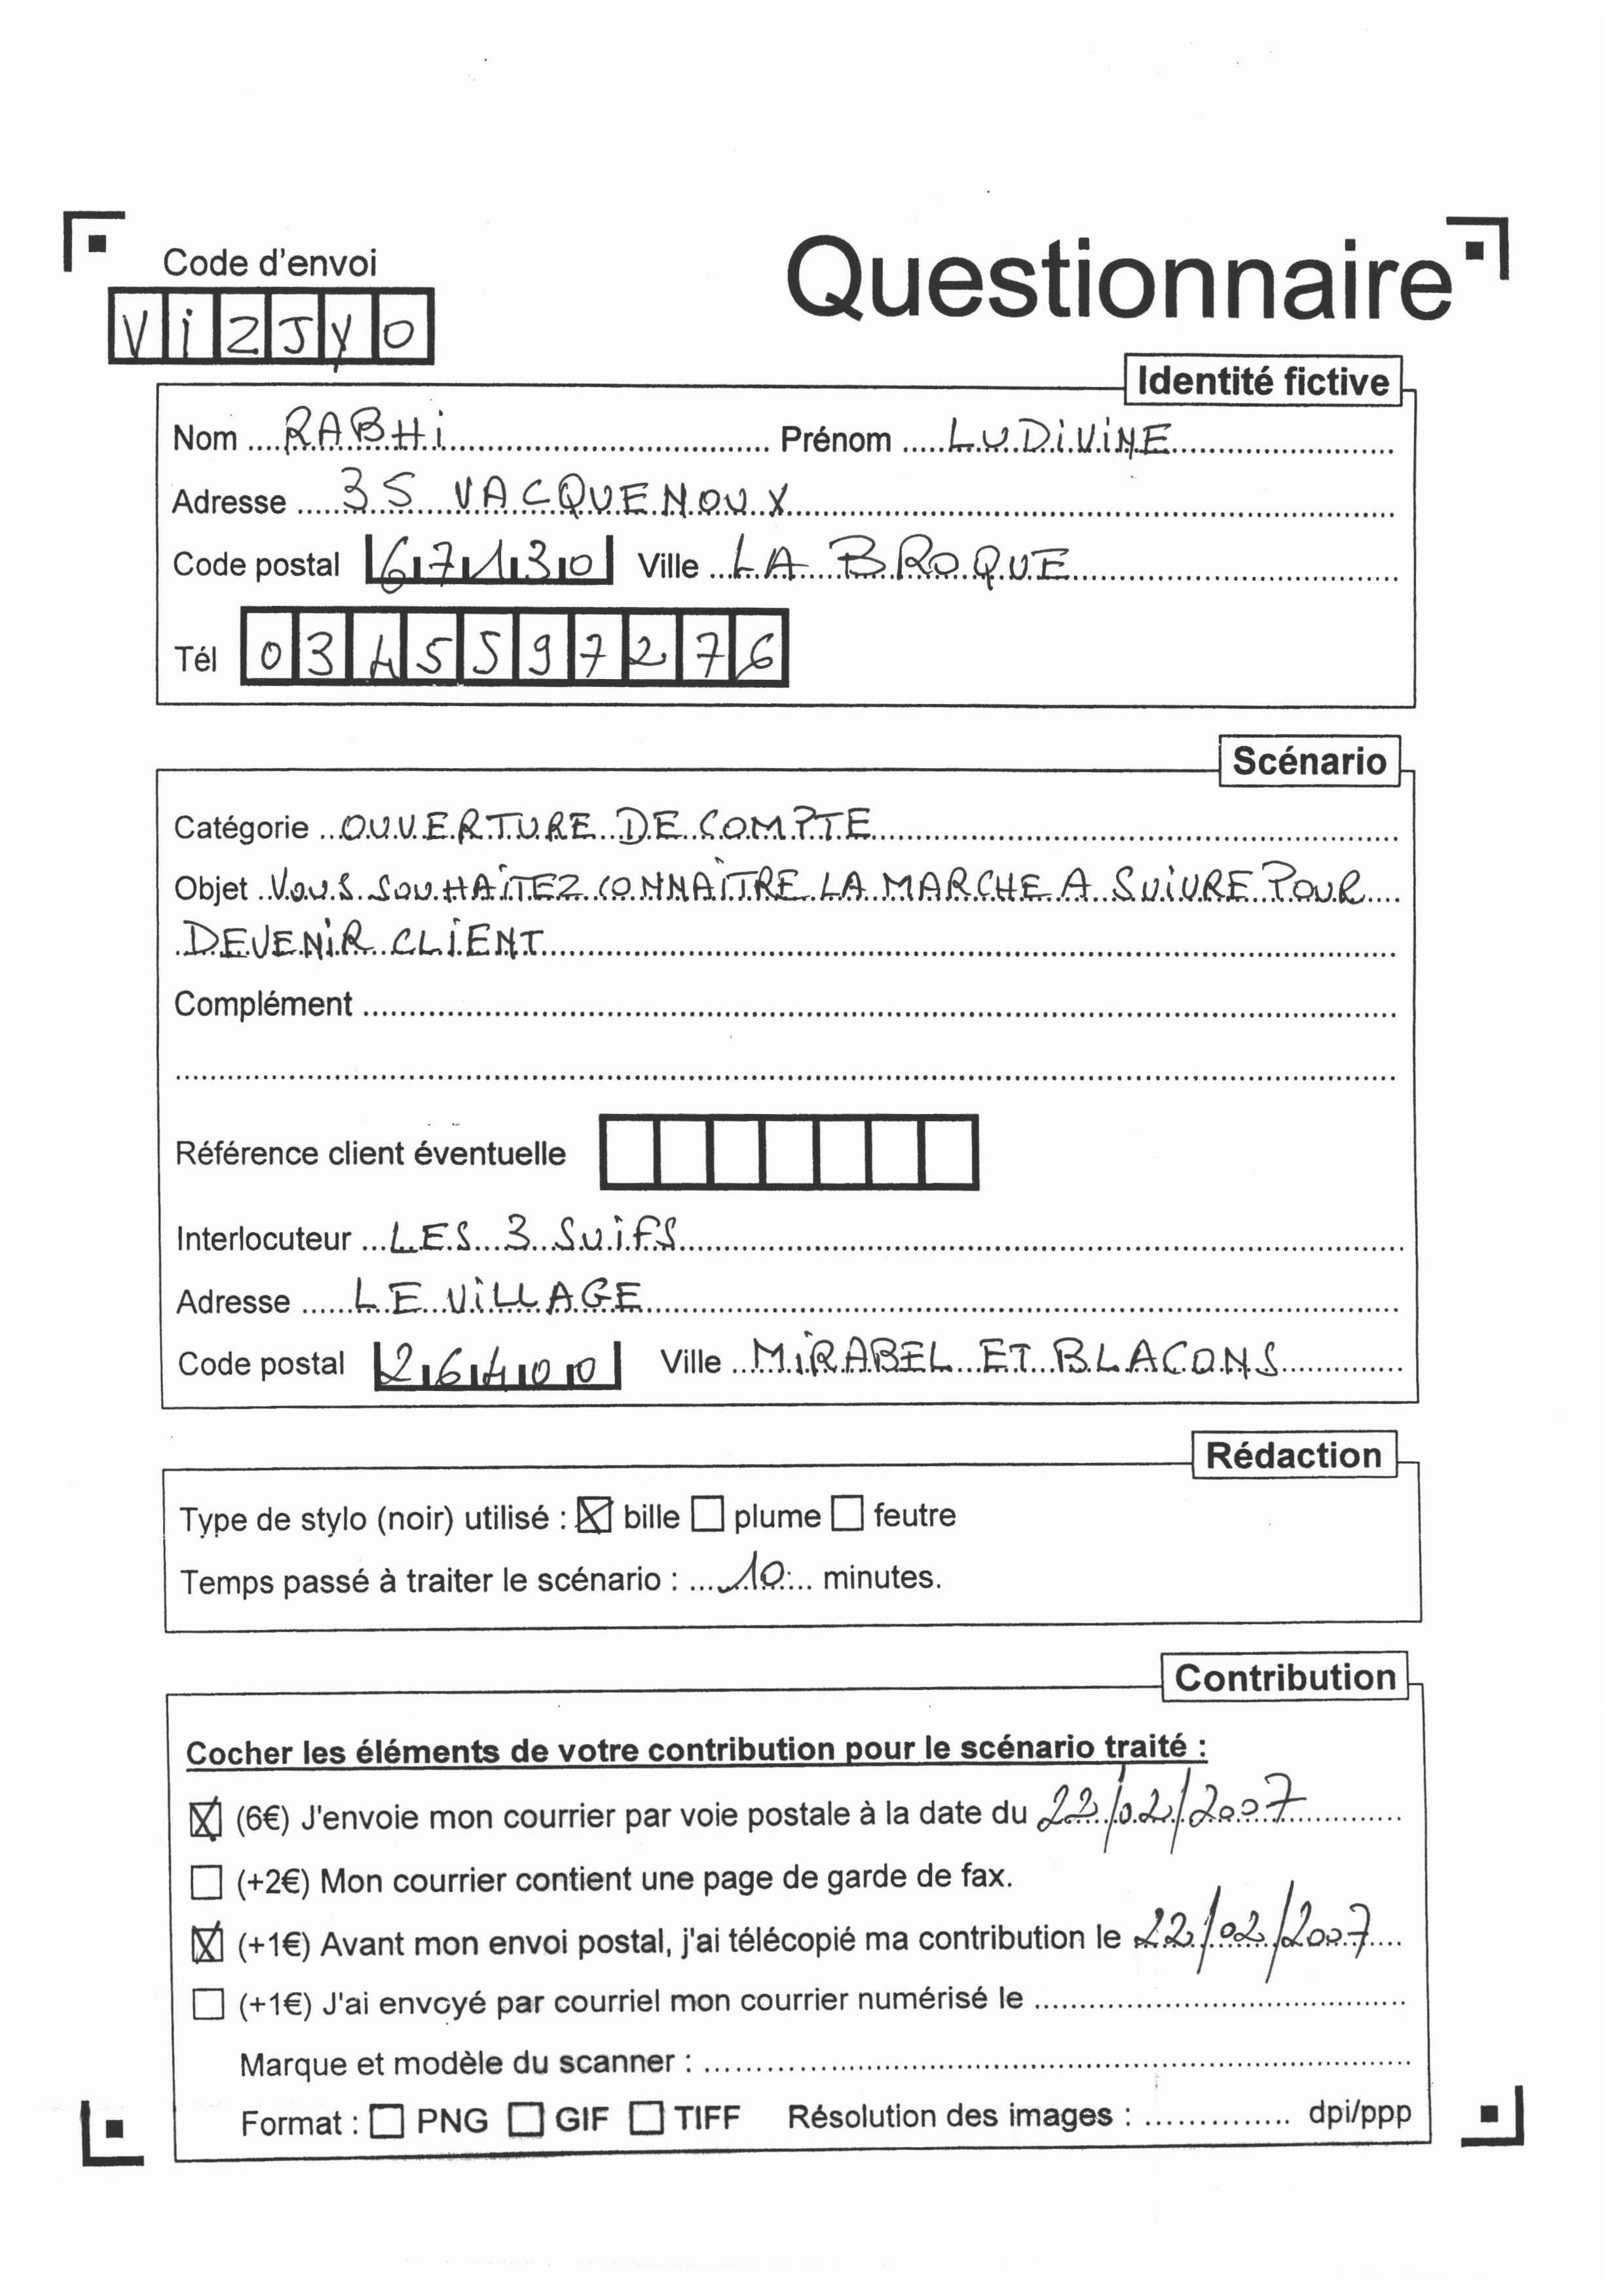 Code d'envoi
Questionnaire
ViZJyO
Identité fictive
Nom RABHi Prénom LUDiViNE
Adresse 35 VACQUENOUX
Code postal 67130 Ville LA BROQUE
Tél 0345597276
Scénario
Catégorie OUVERTURE DE COMPTE
Objet VOUS SOUHAÎTEZ CONNAÎTRE LA MARCHE A SUiVRE POUR
DEVENiR CLiENT
Complément
Référence client éventuelle
Interlocuteur LES 3 SUifS
Adresse LE ViLLAGE
Code postal 26400 Ville MiRABEL ET BLACONS
Rédaction
Type de stylo (noir) utilisé : ☒ bille ☐ plume ☐ feutre
Temps passé à traiter le scénario : 10 minutes.
Contribution
Cocher les éléments de votre contribution pour le scénario traité :
☒ (6€) J'envoie mon courrier par voie postale à la date du 22/02/2007
☐ (+2€) Mon courrier contient une page de garde de fax.
☒ (+1€) Avant mon envoi postal, j'ai télécopié ma contribution le 22/02/2007
☐ (+1€) J'ai envoyé par courriel mon courrier numérisé le
Marque et modèle du scanner :
Format : ☐ PNG ☐ GIF ☐ TIFF Résolution des images : dpi/ppp